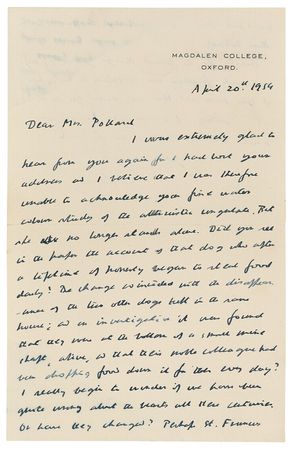 MAGDALEN COLLEGE,
OXFORD.
April 20th 1954
Dear Mrs. Pollard
I was extremely glad to
hear from you again for I had lost your
address and I believe that I was therefore
unable to acknowledge your fine water
colour study of the altruistic
she no longer stands alone. Did you see
in the paper the account of that dog who after
a lifetime of honesty began to steal food
daily? The change coincided with the disappear-
-ance of the two other dogs in the same
house; and on investigation it was found
that they were at the bottom of a small mine
shaft, alive, and that their noble colleague had
been dropping food down it for them every day?
I really begin to wonder if we have been
quite wrong about the beasts all these centuries.
Or have they changed? Perhaps St. Francis